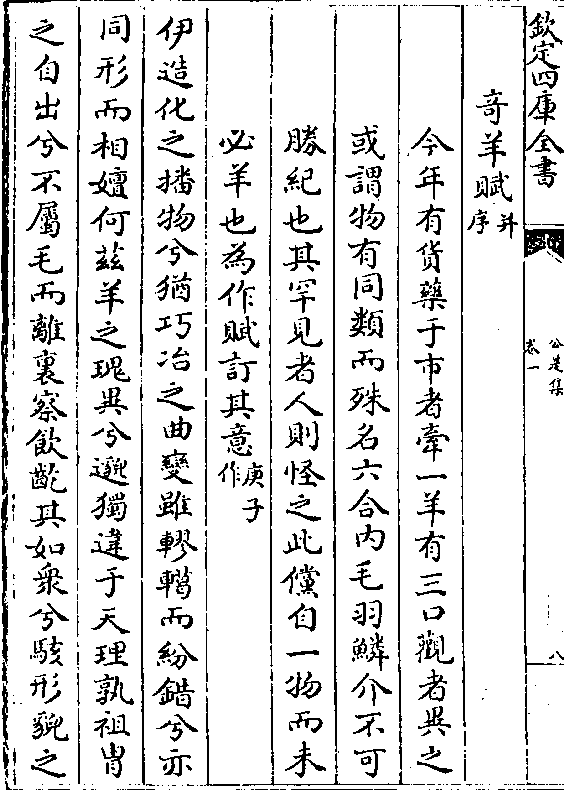 欽定四庫全書
公是集
卷一
八
奇羊賦并序
今年有貨藥于市者牽一羊有三口觀者異之
或謂物有同類而殊名六合内毛羽鱗介不可
勝紀也其罕見者人則怪之此儻自一物而未
必羊也為作賦訂其意庚子作
伊造化之播物兮猶巧冶之曲變雖轇轕而紛錯兮亦
同形而相嬗何兹羊之瑰異兮邈獨違于天理孰祖胄
之自出兮不屬毛而離裏察飲齕其如衆兮駭形貌之